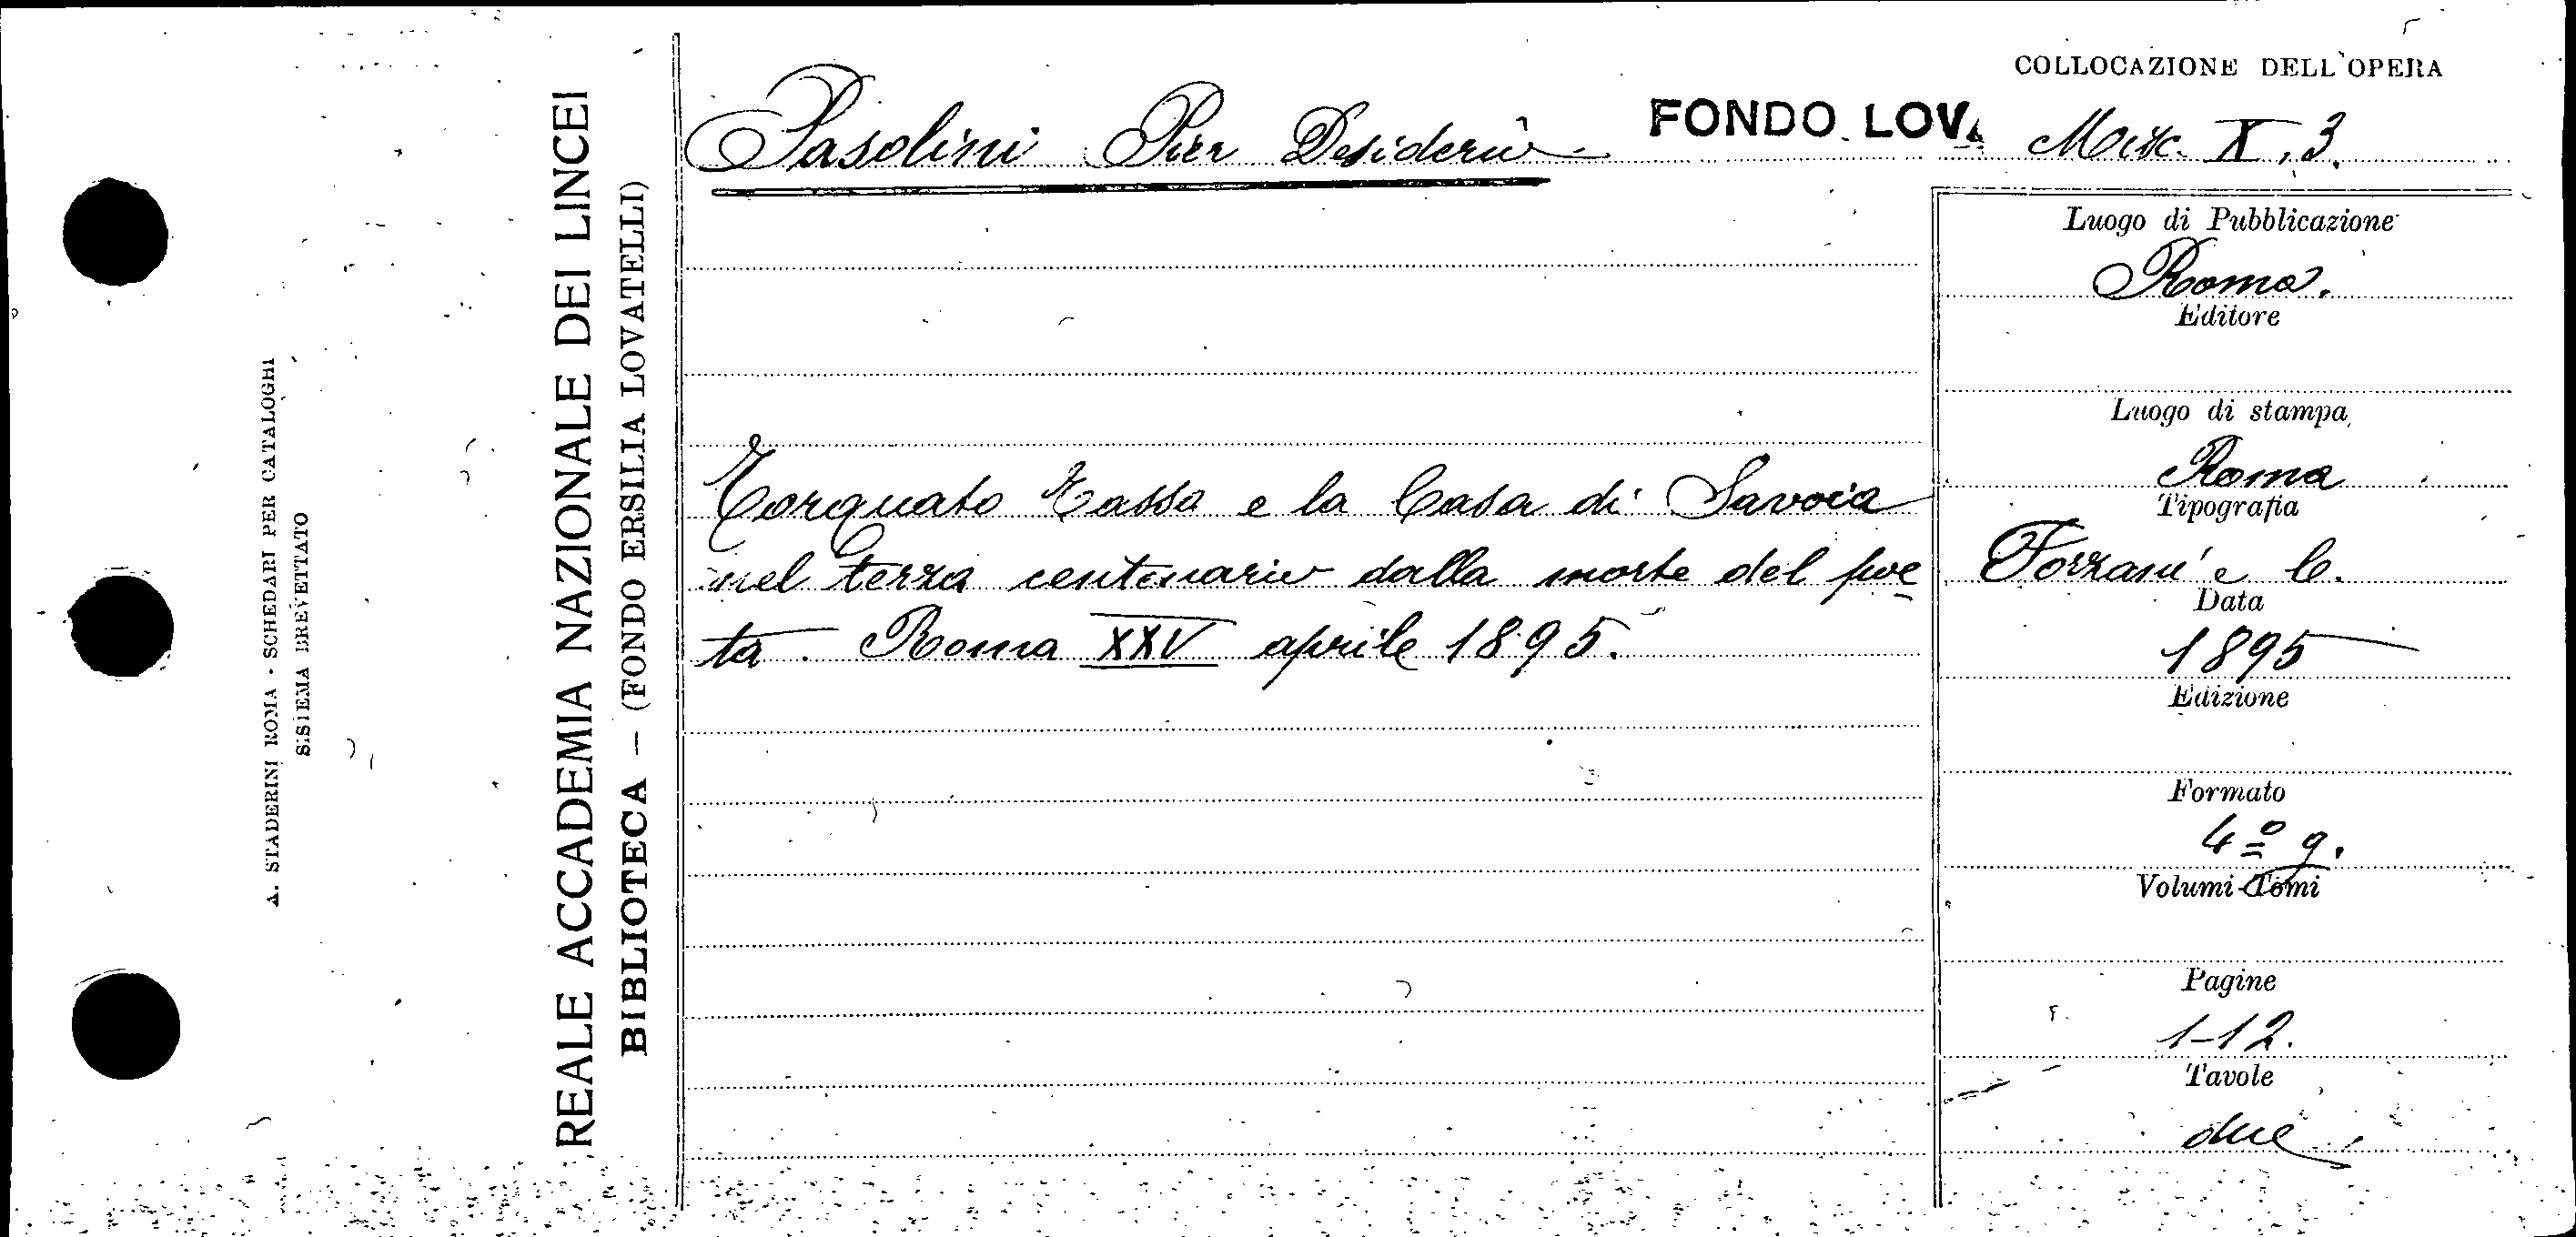 A. STADERINI ROMA - SCHEDARI PER CATALOGHI
SISTEMA BREVETTATO
REALE ACCADEMIA NAZIONALE DEI LINCEI
BIBLIOTECA — (FONDO ERSILIA LOVATELLI)
Pasolini Pier Desiderio
FONDO LOV.
COLLOCAZIONE DELL'OPERA
Misc. X, 3.
Torquato Tasso e la Casa di Savoia
nel terzo centenario dalla morte del poe
ta. Roma XXV aprile 1895.
Luogo di Pubblicazione
Roma.
Editore
Luogo di stampa
Roma
Tipografia
Forzani e C.
Data
1895
Edizione
Formato
4º g.
Volumi-Tomi
Pagine
1-12.
Tavole
due